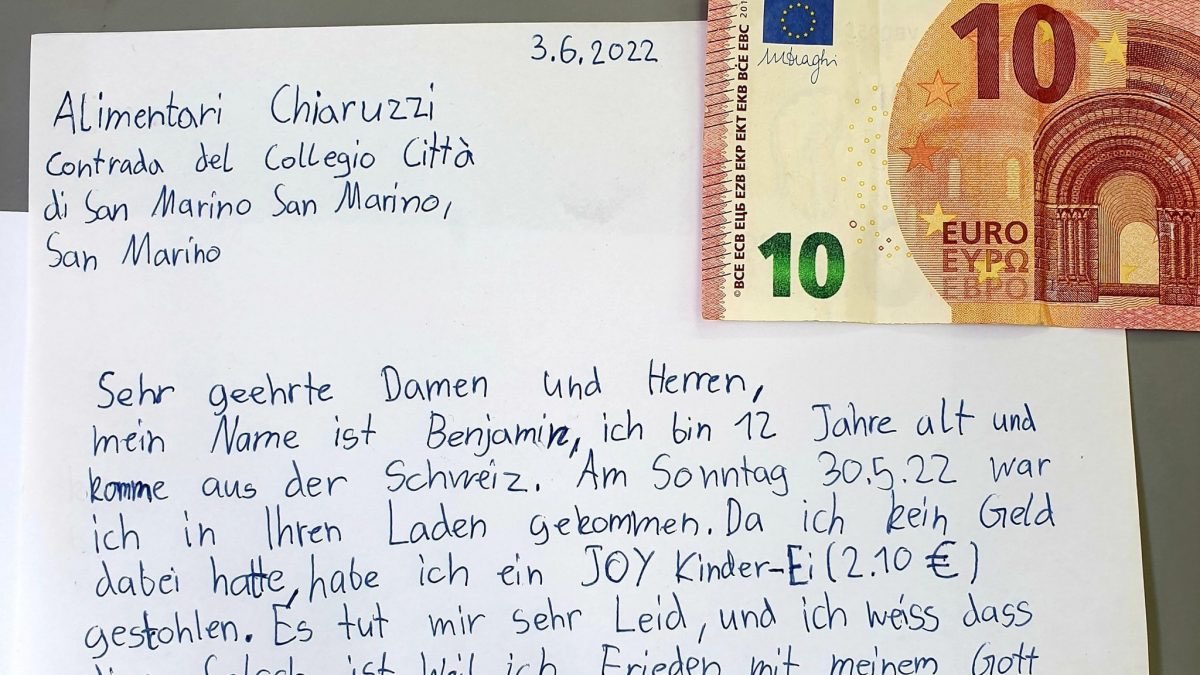 3.6.2022
Alimentari Chiaruzzi
Contrada del Collegio Città
di San Marino San Marino,
San Marino
Sehr geehrte Damen und Herren,
mein Name ist Benjamin, ich bin 12 Jahre alt und
komme aus der Schweiz. Am Sonntag 30.5.22 war
ich in Ihren Laden gekommen. Da ich kein Geld
dabei hatte, habe ich ein JOY Kinder-Ei (2.10 €)
gestohlen. Es tut mir sehr Leid, und ich weiss dass
ist Weil ich Frieden mit meinem Gott
©BCE ECB ЕЦБ EZB EKP EKT EKB BĊE EBC
10
10
EURO
ΕΥΡΩ
ЕВРО